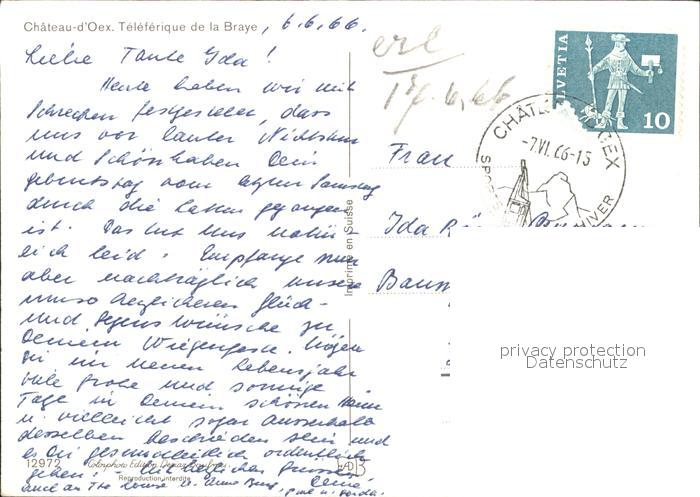 Château-d'Oex. Téléférique de la Braye, 6.6.66.
Liebe Tante Ida!
Heute haben wir mit
Schrecken festgestellt, dass
uns vor lauter Nichtstun
und Schönhaben Dein
Geburtstag vom letzten Samstag
durch die Latten gegangen
ist. Das tut uns natür-
lich leid. Empfange nun
aber nachträglich unsere
umso herzlicheren Glück-
und Segenswünsche zu
Deinem Wiegenfeste. Mögen
Dir im neuen Lebensjahr
viele frohe und sonnige
Tage in Deinem schönen Heim
u. vielleicht sogar ausserhalb
desselben beschieden sein und
es Dir gesundheitlich ordentlich
gehen! Mit herzlichen Grüssen
auch an
12972
Reproduction interdite
Imprimé en Suisse
erl
17.6.66
HELVETIA
10
CHÂTEAU-D'OEX
-7.VI.66-15
SPORTS HIVER
Frau
Ida
privacy protection
Datenschutz